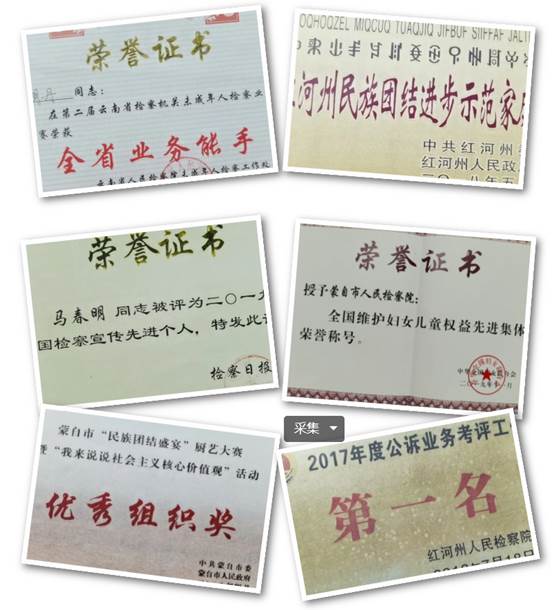 荣誉证书
同志：
在第二届云南省检察机关未成年人检察业
赛荣获
全省业务能手
云南省人民检察院未成年人检察工作处
OQHOQZEL MIQCUQ YUAQJIQ JIFBUF SIIFFAF JALI
红河州民族团结进步示范家庭
中共红河州
红河州人民政
二〇一八年五
荣誉证书
马春明 同志被评为二〇一九
国检察宣传先进个人，特发此证
检察日报
荣誉证书
授予蒙自市人民检察院：
全国维护妇女儿童权益先进集体
荣誉称号。
蒙自市“民族团结盛宴”厨艺大赛
暨“我来说说社会主义核心价值观”活动
优秀组织奖
中共蒙自市委
蒙自市人民政府
采集
2017年度公诉业务考评工
第一名
红河州人民检察院